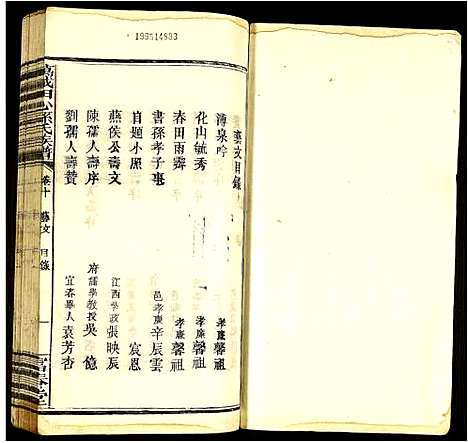 199514993
藝文目錄
溥泉吟 孝廉馨祖
花山毓秀 孝廉馨祖
春田雨霽 孝廉馨祖
書孫孝子事 邑孝廉辛辰雲
自題小照 宸恩
燕侯公壽文 江西學政張映辰
陳孺人壽序 府儒學教授吳億
劉孺人壽贊 宜春舉人袁芳杏
萬載田心孫氏族譜 卷十 藝文 目錄 一 富春堂